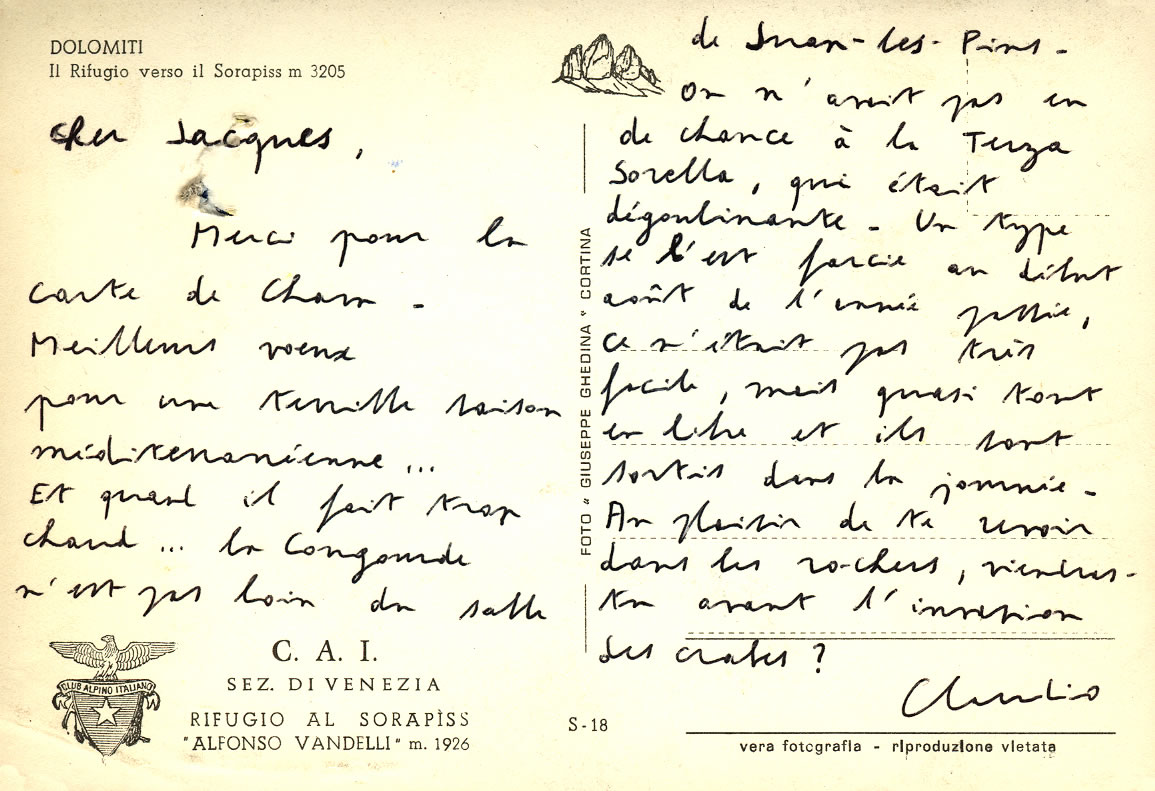 DOLOMITI
Il Rifugio verso il Sorapiss m 3205
Cher Jacques,
Merci pour la
carte de Cham -
Meilleurs voeux
pour une terrible saison
méditerranéenne ...
Et quand il fait trop
chaud ... la Cougourde
n'est pas loin du sable
C. A. I.
SEZ. DI VENEZIA
RIFUGIO AL SORAPÌSS
"ALFONSO VANDELLI" m. 1926
CLUB ALPINO ITALIANO
FOTO "GIUSEPPE GHEDINA" CORTINA
S-18
de Juan-les-Pins -
On n'avait pas eu
de chance à la Terza
Sorella, qui était
dégoulinante - Un type
se l'est farcie au début
août de l'année passée,
ce n'était pas très
facile, mais quasi tout
en libre et ils sont
sortis dans la journée -
Au plaisir de te revoir
dans les rochers, viendras-
tu avant l'invasion
des crabes ?
Claudio
vera fotografia - riproduzione vietata